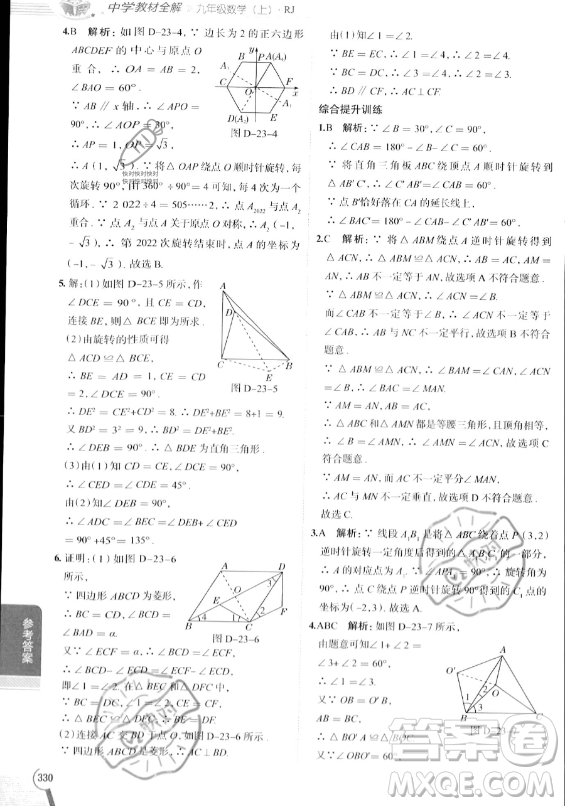 中学教材全解 九年级数学（上）·RJ
4.B 解析：如图 D-23-4，∵ 边长为 2 的正六边形
ABCDEF 的中心与原点 O
重合，∴ OA=AB=2，
∠BAO=60°.
∵ AB∥x 轴，∴ ∠APO=
90°，∴ ∠AOP=30°，
∴ AP=1，OP=√3，
图 D-23-4
∴ A(1，√3). ∵ 将△OAP 绕点 O 顺时针旋转，每
次旋转 90°，由 360°÷90°=4 可知，每 4 次为一个
循环. ∵ 2 022÷4=505……2，∴ 点 A2022 与点 A2
重合. ∵ 点 A2 与点 A 关于原点 O 对称，∴ A2(-1，
-√3)，∴ 第 2022 次旋转结束时，点 A 的坐标为
(-1，-√3). 故选 B.
5.解：(1)如图 D-23-5 所示，作
∠DCE=90°，且 CE=CD，
连接 BE，则△BCE 即为所求.
(2)由旋转的性质可得
△ACD≌△BCE，
∴ BE=AD=1，CE=CD=
2，∠DCE=90°，
图 D-23-5
∴ DE²=CE²+CD²=8，∴ DE²+BE²=8+1=9.
又 BD²=3²=9，∴ DE²+BE²=BD²，
∴ ∠DEB=90°，∴ △BDE 为直角三角形.
(3)由(1)知 CD=CE，∠DCE=90°，∴ ∠CDE=
∠CED=45°.
由(2)知∠DEB=90°，
∴ ∠ADC=∠BEC=∠BED+∠CED
=90°+45°=135°.
6.证明：(1)如图 D-23-6
所示，
∵ 四边形 ABCD 为菱形，
∴ BC=CD，∠BCD=
∠BAD=α.
图 D-23-6
又∵ ∠ECF=α，∴ ∠BCD=∠ECF，
∴ ∠BCE=∠DCF.
又∵ CE=CF，∴ △BEC≌△DFC，
∴ BE=DF.
(2)连接 BD，如图 D-23-6 所示.
∵ 四边形 ABCD 是菱形，∴ AC⊥BD.
又∵ △BEC≌△DFC，∴ ∠1=∠2.
∵ BE=EC，∴ ∠1=∠3，∴ ∠2=∠3.
∵ BC=DC，∴ ∠3=∠4，∴ ∠2=∠4，
∴ BD∥CF，∴ AC⊥CF.
综合提升训练
1.B 解析：∵ ∠B=30°，∠C=90°，
∴ ∠CAB=180°-∠B-∠C=60°.
∵ 将直角三角板 ABC 绕顶点 A 顺时针旋转到
△AB′C′，∴ ∠C′AB′=∠CAB=60°.
∵ 点 B′恰好落在 CA 的延长线上，
∴ ∠BAC′=180°-∠CAB-∠C′AB′=60°.
2.C 解析：∵ 将△ABM 绕点 A 逆时针旋转得到
△ACN，∴ △ABM≌△ACN，
∴ AB=AC，AM=AN，
∴ AB 不一定等于 AN，故选项 A 不符合题意.
∵ △ABM≌△ACN，∴ ∠ACN=∠B.
而∠CAB 不一定等于∠B，∴ ∠ACN 不一定等于
∠CAB，∴ AB 与 CN 不一定平行，故选项 B 不符合
题意.
∵ △ABM≌△ACN，
∴ ∠BAM=∠CAN，∠ABC=∠ACN.
∵ AM=AN，AB=AC，
∴ △ABC 和△AMN 都是等腰三角形，且顶角相等，
∴ ∠B=∠AMN，∴ ∠AMN=∠ACN，故选项 C
符合题意.
∵ AM=AN，而 AC 不一定平分∠MAN，
∴ AC 与 MN 不一定垂直，故选项 D 不符合题意.
故选 C.
3.A 解析：∵ 线段 A1B1 是将△ABC 绕着点 P(3，2)
逆时针旋转一定角度后得到的△A1B1C1 的一部分，
∴ A 的对应点为 A1. ∵ ∠APA1=90°，∴ 旋转角为
90°，∴ 点 C 绕点 P 逆时针旋转 90°得到的点 C1 的
坐标为(-2，3). 故选 A.
4.ABC 解析：如图 D-23-7 所示，
由题意可知，∠1+∠2=
∠3+∠2=60°，
∴ ∠1=∠3.
又∵ OB=O′B，
AB=BC，
∴ △BO′A≌△BOC.
又∵ ∠OBO′=60°，
参考答案
330
答案圈
MXQE.COM